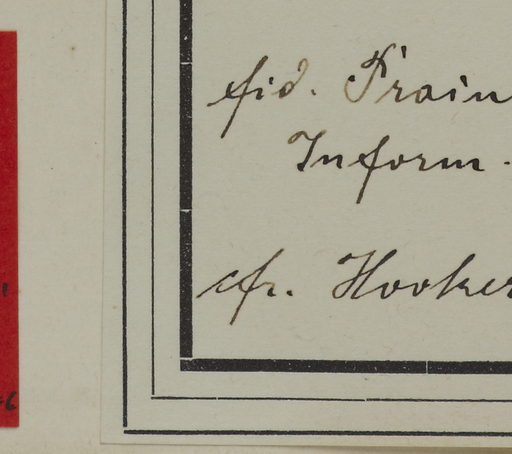 fid. Prain
Inform.
cfr. Hooker